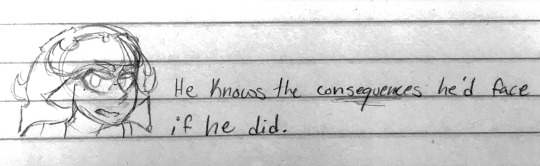 He knows the consequences he'd face
if he did.